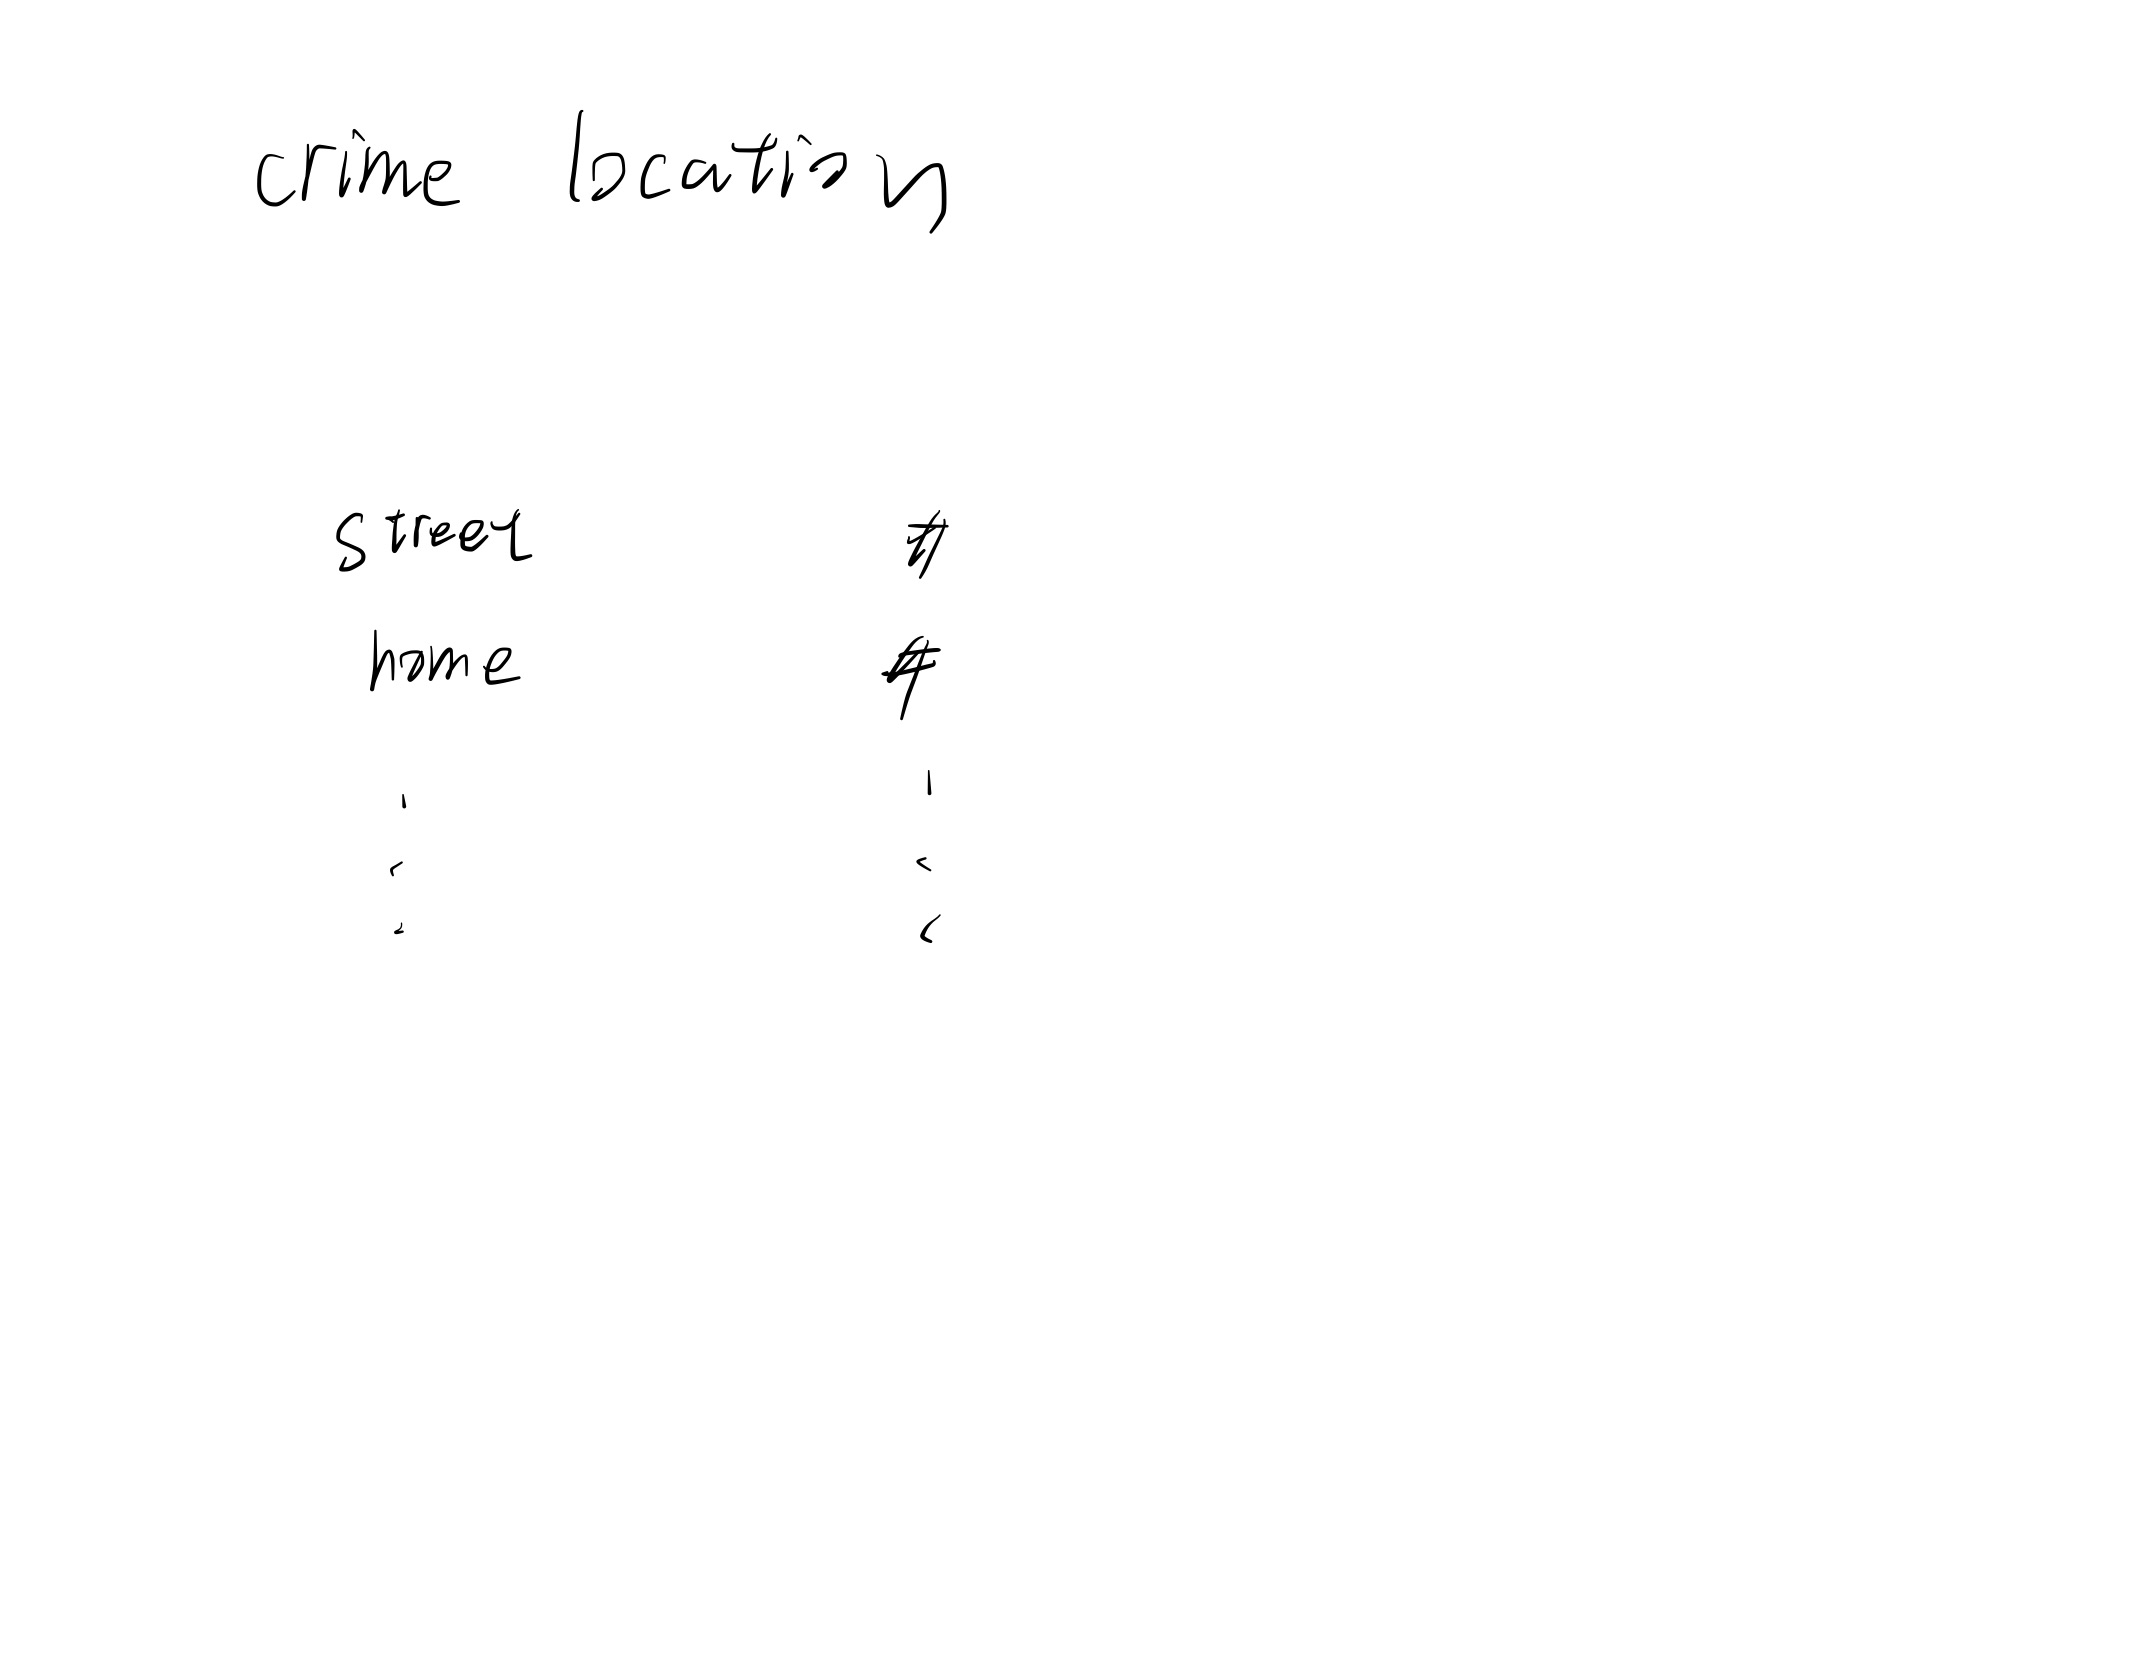 crime location
street #
home #